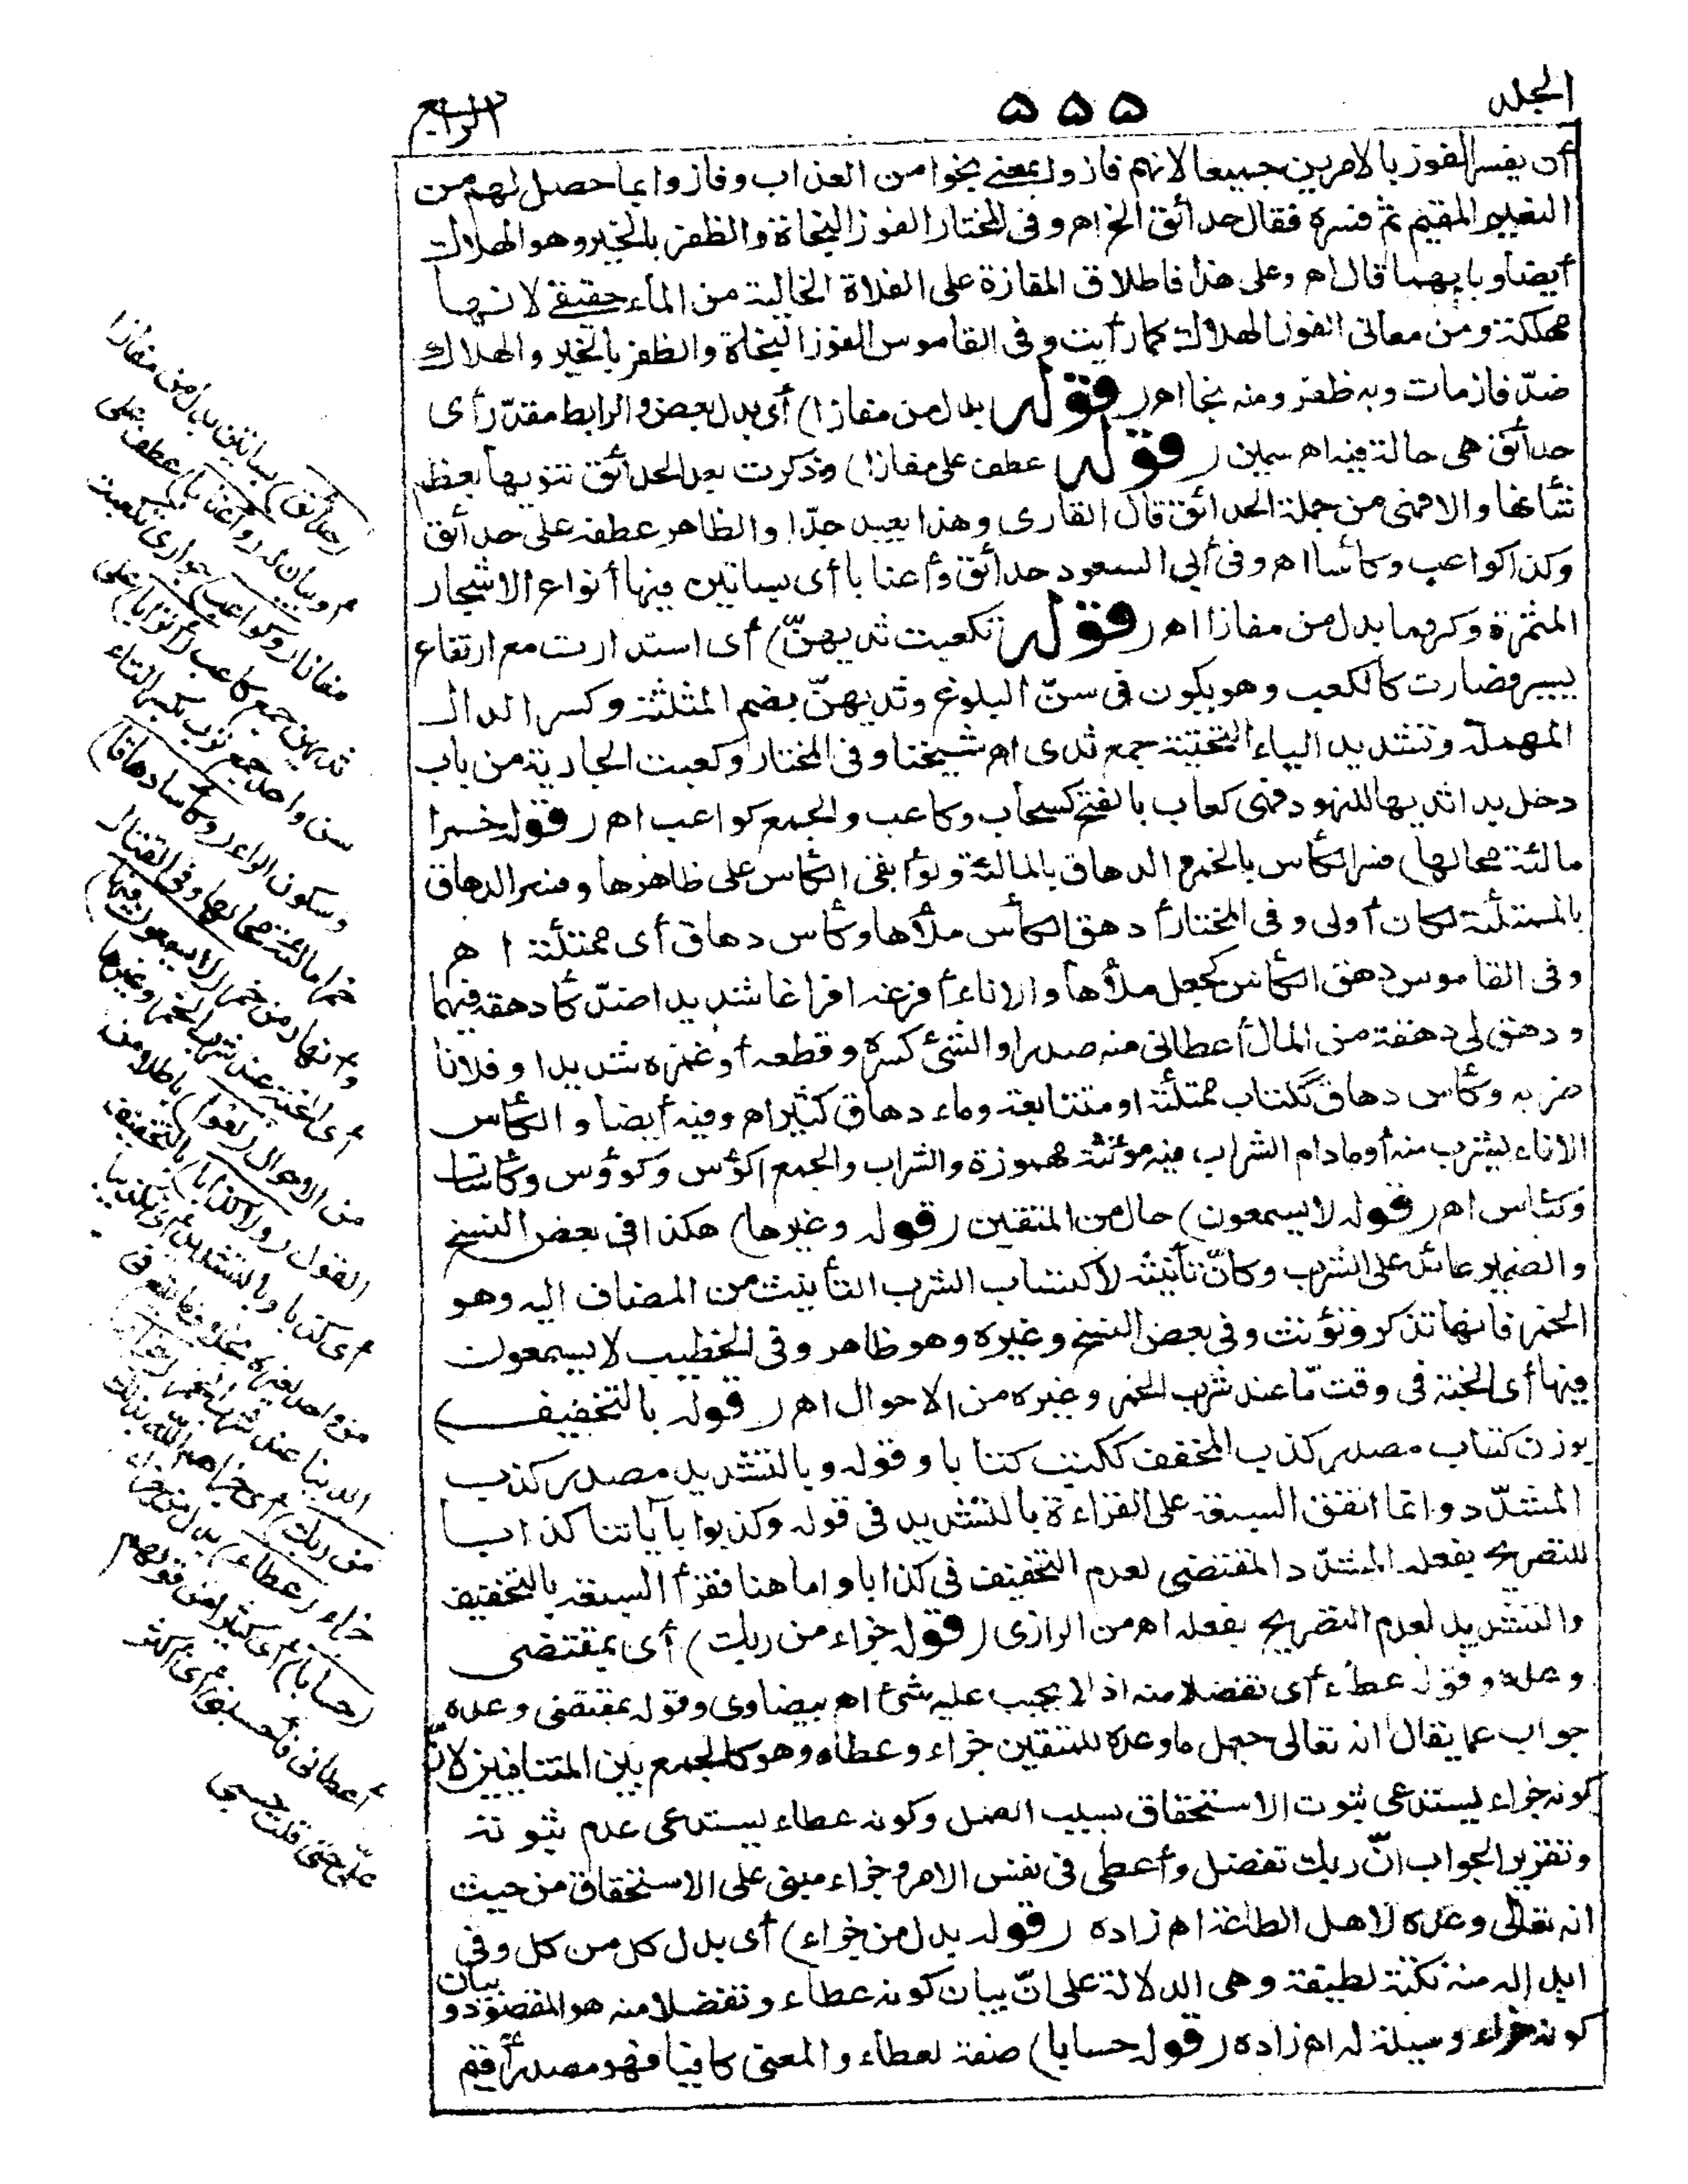 الجلد
٥٥٥
الرابع
أن يفسر الفوز بالامرين جميعا لانهم فازوا بمعنى نجوا من العذاب وفازوا بما حصل لهم من
النعيم المقيم ثم فسره فقال حدائق الخ اهـ وفى المختار الفوز النجاة والظفر بالخير وهو الهلاك
أيضا وبابهما قال اهـ وعلى هذا فاطلاق المفازة على الفلاة الخالية من الماء حقيقى لانها
مهلكة ومن معانى الفوز الهلاك كما رأيت وفى القاموس الفوز النجاة والظفر بالخير والهلاك
ضدّ فاز مات وبه ظفر ومنه نجا اهـ (قوله بدل من مفازا) أى بدل بعض والرابط مقدّر أى
حدائق هى حالة فيه اهـ سمين (قوله عطف على مفازا) وذكرت بعد الحدائق تنويها بعظم
شأنها والا فهى من جملة الحدائق قال القارى وهذا بعيد جدّا والظاهر عطفه على حدائق
وكذا كواعب وكأسا اهـ وفى أبى السعود حدائق وأعنابا أى بساتين فيها أنواع الاشجار
المثمرة وكرهما بدل من مفازا اهـ (قوله تكعبت ثديهنّ) أى استدارت مع ارتفاع
يسير فصارت كالكعب وهو يكون فى سنّ البلوغ وثديهنّ بضم المثلثة وكسر الدال
المهملة وتشديد الياء التحتية جمع ثدى اهـ شيخنا وفى المختار وكعبت الجارية من باب
دخل بدا ثديها للنهود فهى كعاب بالفتح كسحاب وكاعب والجمع كواعب اهـ (قوله خمرا
مالئة محالها) فسر الكأس بالخمر والدهاق بالمالئة ولو أبقى الكأس على ظاهرها وفسر الدهاق
بالممتلئة لكان أولى وفى المختار أدهق الكأس ملأها وكأس دهاق أى ممتلئة اهـ
وفى القاموس دهق الكأس كجعل ملأها والاناء أفرغه افراغا شديدا ضدّ كأدهقه فيهما
ودهق لى دهقة من المال أعطانى منه صدرا والشئ كسره وقطعه أو غمزه شديدا وفلانا
ضربه وكأس دهاق ككتاب ممتلئة او متتابعة وماء دهاق كثير اهـ وفيه أيضا والكأس
الاناء يشرب منه أو مادام الشراب فيه مؤنثة مهموزة والشراب والجمع اكؤس وكؤوس وكأسات
وكئاس اهـ (قوله لا يسمعون) حال من المتقين (قوله وغيرها) هكذا فى بعض النسخ
والضمير عائد على الشرب وكأنّ تأنيثه لاكتساب الشرب التأنيث من المضاف اليه وهو
الخمر فانها تذكر وتؤنث وفى بعض النسخ وغيره وهو ظاهر وفى الخطيب لا يسمعون
فيها أى الجنة فى وقت مّا عند شرب الخمر وغيره من الاحوال اهـ (قوله بالتخفيف)
بوزن كتاب مصدر كذب المخفف ككتب كتابا وقوله وبالتشديد مصدر كذب
المشدّد وانما اتفق السبعة على القراءة بالتشديد فى قوله وكذبوا بآياتنا كذابا
للتصريح بفعله المشدّد المقتضى لعدم التخفيف فى كذابا واما هنا فقرأ السبعة بالتخفيف
والتشديد لعدم التصريح بفعله اهـ من الرازى (قوله جزاء من ربك) أى بمقتضى
وعده وقوله عطاء أى تفضلا منه اذ لا يجب عليه شئ اهـ بيضاوى وقوله بمقتضى وعده
جواب عما يقال انه تعالى جعل ما وعده للمتقين جزاء وعطاء وهو كالجمع بين المتنافيين لانّ
كونه جزاء يستدعى ثبوت الاستحقاق بسبب العمل وكونه عطاء يستدعى عدم ثبوته
وتقرير الجواب انّ ربك تفضل وأعطى فى نفس الامر وجزاء مبنى على الاستحقاق من حيث
انه تعالى وعده لاهل الطاعة اهـ زاده (قوله بدل من جزاء) أى بدل كل من كل وفى
ابداله منه نكتة لطيفة وهى الدلالة على انّ بيان كونه عطاء وتفضلا منه هو المقصود وبيان
كونه جزاء وسيلة له اهـ زاده (قوله حسابا) صفة لعطاء والمعنى كافيا فهو مصدر أقيم
(حدائق) بساتين بدل من مفازا
أو بيان له (وأعنابا) عطف على
مفازا (وكواعب) جوارى تكعبت
ثديهن جمع كاعب (أترابا) على
سن واحد جمع ترب بكسر التاء
وسكون الراء (وكأسا دهاقا)
خمرا مالئة محالها وفى القتال
وأنهار من خمر (لا يسمعون فيها)
أى الجنة عند شرب الخمر وغيرها
من الاحوال (لغوا) باطلا من
القول (ولا كذابا) بالتخفيف
أى كذبا وبالتشديد أى تكذيبا
من واحد لغيره بخلاف ما يقع فى
الدنيا عند شرب الخمر (جزاء
من ربك) أى جزاهم الله بذلك
جزاء (عطاء) بدل من جزاء
(حسابا) أى كثيرا من قولهم
أعطانى فأحسبنى أى أكثر
علىّ حتى قلت حسبى